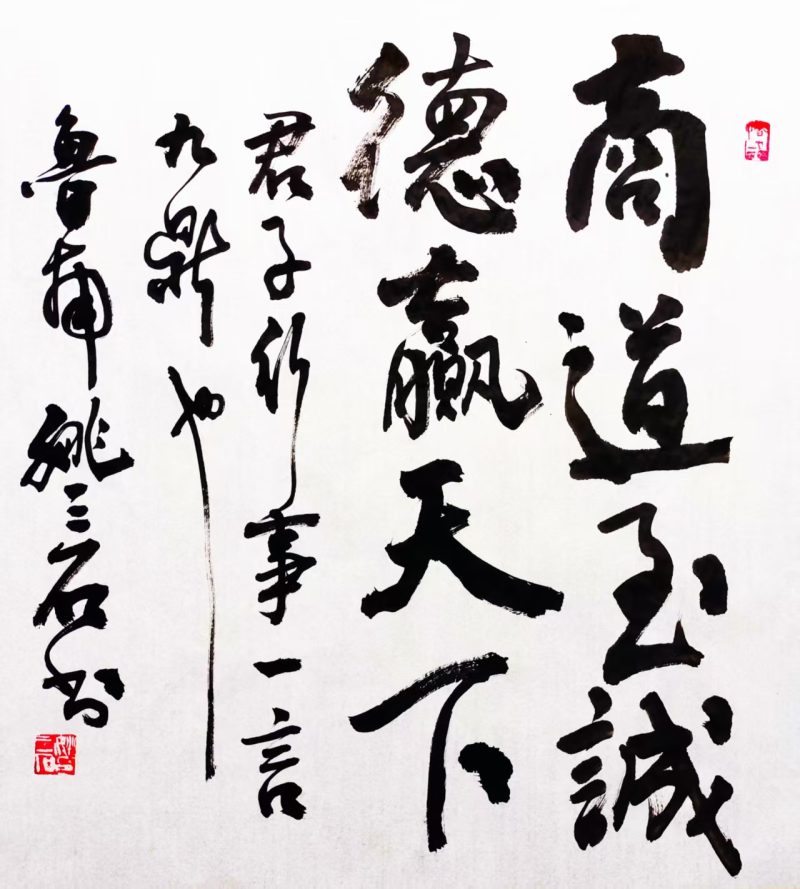 商道至誠
德贏天下
君子行事一言
九鼎也
魯南姚三石书
姚三石